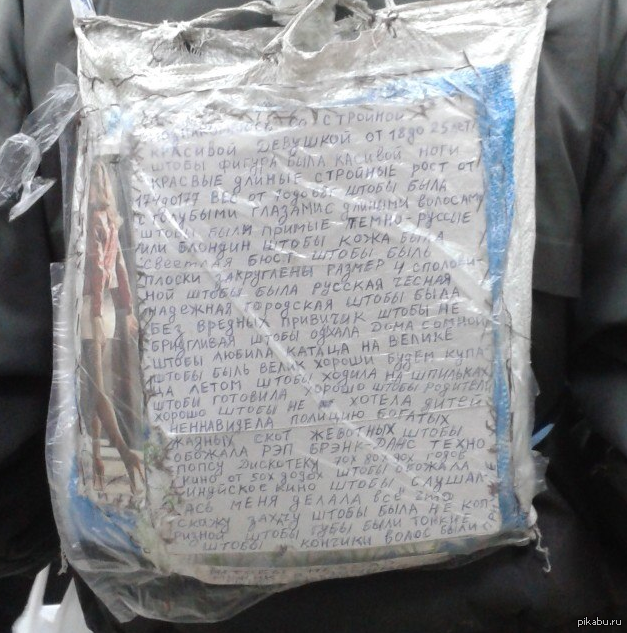 СТРОЙНОЙ
КРАСИВОЙ ДЕВУШКОЙ ОТ 18 ДО 25 ЛЕТ
ШТОБЫ ФИГУРА БЫЛА КАСИВОЙ НОГИ
КРАСВЫЕ ДЛИНЫЕ СТРОЙНЫЕ РОСТ ОТ
ВЕС ОТ ШТОБЫ БЫЛА
С ГОЛУБЫМИ ГЛАЗАМИ С ДЛИНЫМИ ВОЛОСАМИ
ШТОБЫ БЫЛИ ПРИМЫЕ ТЕМНО-РУССЫЕ
ИЛИ БЛОНДИН ШТОБЫ КОЖА БЫЛА
СВЕТЛАЯ БЮСТ ШТОБЫ БЫЛЬ
ПЛОСКИ ЗАКРУГЛЕНЫ РАЗМЕР 4 СПОЛОВИ-
НОЙ ШТОБЫ БЫЛА РУССКАЯ ЧЕСНАЯ
НАДЕЖНАЯ ГОРОДСКАЯ ШТОБЫ БЫЛА
БЕЗ ВРЕДНЫХ ПРИВИЧИК ШТОБЫ НЕ
БРИДГЛИВАЯ ШТОБЫ ДОМА СОМНОЙ
ШТОБЫ ЛЮБИЛА КАТАЦА НА ВЕЛИКЕ
ШТОБЫ БЫЛЬ ВЕЛИК ХОРОШИ БУДЕМ КУПА
ЦА ЛЕТОМ ШТОБЫ ХОДИЛА НА ШПИЛЬКАХ
ШТОБЫ ГОТОВИЛА ХОРОШО ШТОБЫ РОДИТЕЛИ
ХОРОШО ШТОБЫ НЕ ХОТЕЛА ДИТЕЙ
НЕННАВИДЕЛА ПОЛИЦИЮ БОГАТЫХ
ЖАДНЫХ СКОТ ЖЕВОТНЫХ ШТОБЫ
ОБОЖАЛА РЭП БРЭНК-ДАНС ТЕХНО
ПОПСУ ДИСКОТЕКУ 70Х 80Х 90Х ГОДОВ
КИНО ОТ 50Х ШТОБЫ ОБОЖАЛА
КИНО ШТОБЫ СЛУШАЛ-
АСЬ МЕНЯ ДЕЛАЛА ВСЁ ЧТО
СКАЖУ ШТОБЫ БЫЛА НЕ КОП-
РИЗНОЙ ШТОБЫ ГУБЫ БЫЛИ ТОНКИЕ
ШТОБЫ КОНЧИКИ ВОЛОС БЫЛИ
pikabu.ru